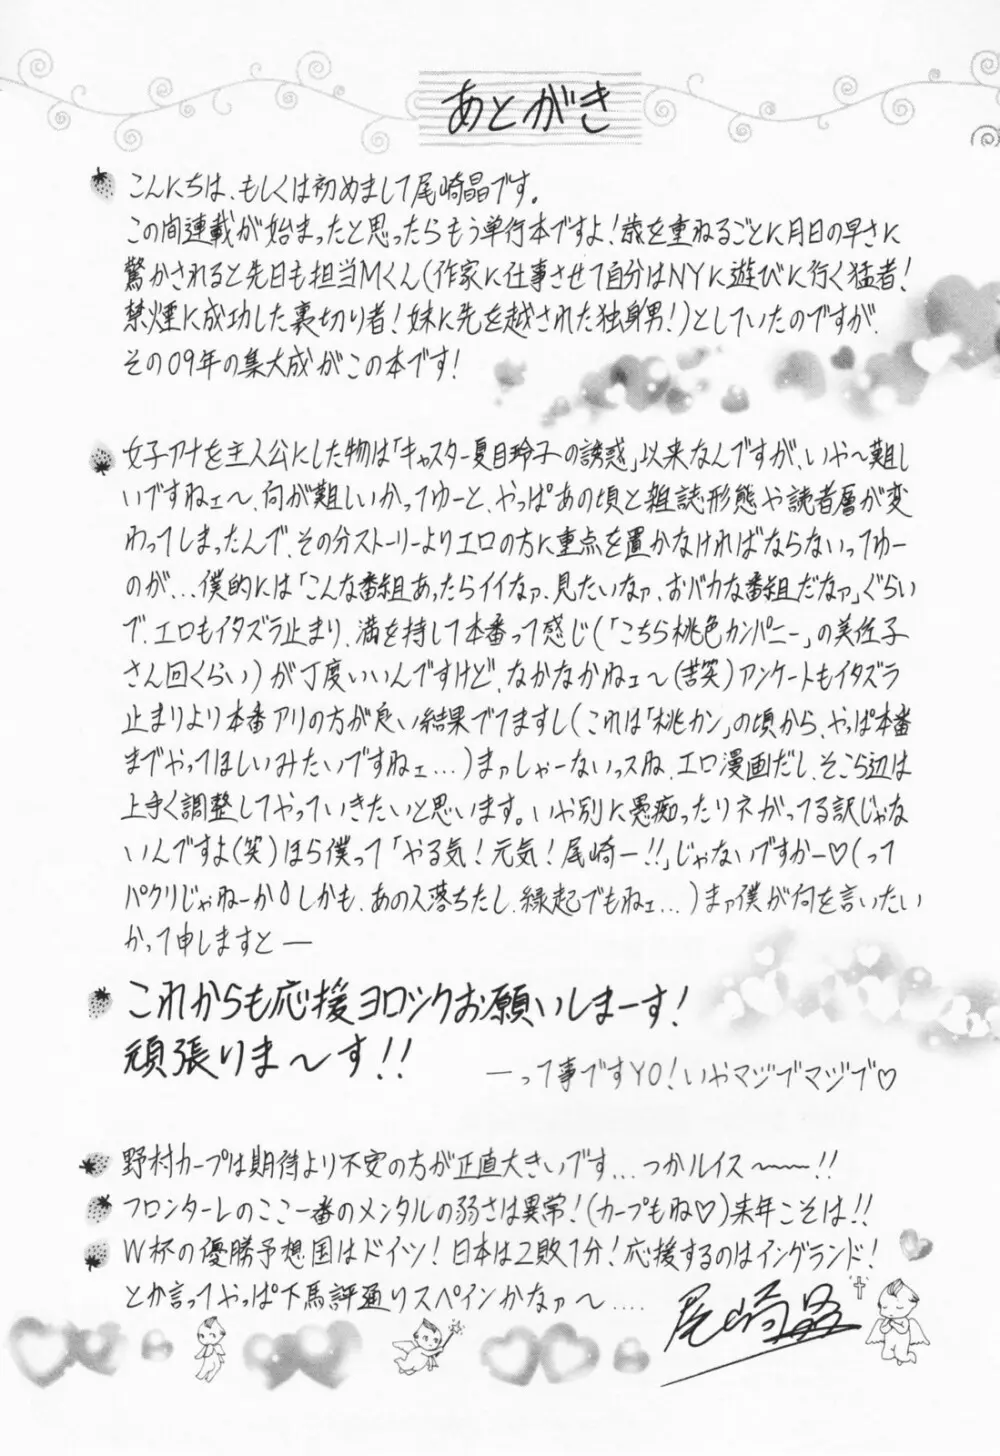 あとがき
こんにちは、もしくは初めまして尾崎晶です。
この間連載が始まったと思ったらもう単行本ですよ！歳を重ねるごとに月日の早さに
驚かされると先日も担当Mくん(作家に仕事させて自分はNYに遊びに行く猛者！
禁煙に成功した裏切り者！妹に先を越された独身男！)としていたのですが、
その09年の集大成がこの本です！
女子アナを主人公にした物は「キャスター夏目玲子の誘惑」以来なんですが、いや〜難し
いですねェ〜、何が難しいかってゆーと、やっぱあの頃と雑誌形態や読者層が変
わってしまったんで、その分ストーリーよりエロの方に重点を置かなければならないってゆー
のが...僕的には「こんな番組あったらイイなァ、見たいなァ、おバカな番組だなァ」ぐらい
で、エロもイタズラ止まり、満を持して本番って感じ(「こちら桃色カンパニー」の美佐子
さん回くらい)が丁度いいんですけど、なかなかねェ〜(苦笑)アンケートもイタズラ
止まりより本番アリの方が良い結果でてますし(これは「桃カン」の頃から、やっぱ本番
までやってほしいみたいですねェ...)まァしゃーないっスね、エロ漫画だし、そこら辺は
上手く調整してやっていきたいと思います。いや別に愚痴ったりネガってる訳じゃな
いんですよ(笑)ほら僕って「やる気！元気！尾崎ー!!」じゃないですかー♡(って
パクリじゃねーか！しかも、あの人落ちたし、縁起でもねェ...)まァ僕が何を言いたい
かって申しますと―
これからも応援ヨロシクお願いしまーす！
頑張りま〜す!!
―って事ですYO！いやマジブマジブ♡
野村カープは期待より不安の方が正直大きいです...つかルイス〜〜!!
フロンターレのここ一番のメンタルの弱さは異常！(カープもね♡)来年こそは!!
W杯の優勝予想国はドイツ！日本は2敗1分！応援するのはイングランド！
とか言ってやっぱ下馬評通りスペインかなァ〜....
尾崎晶